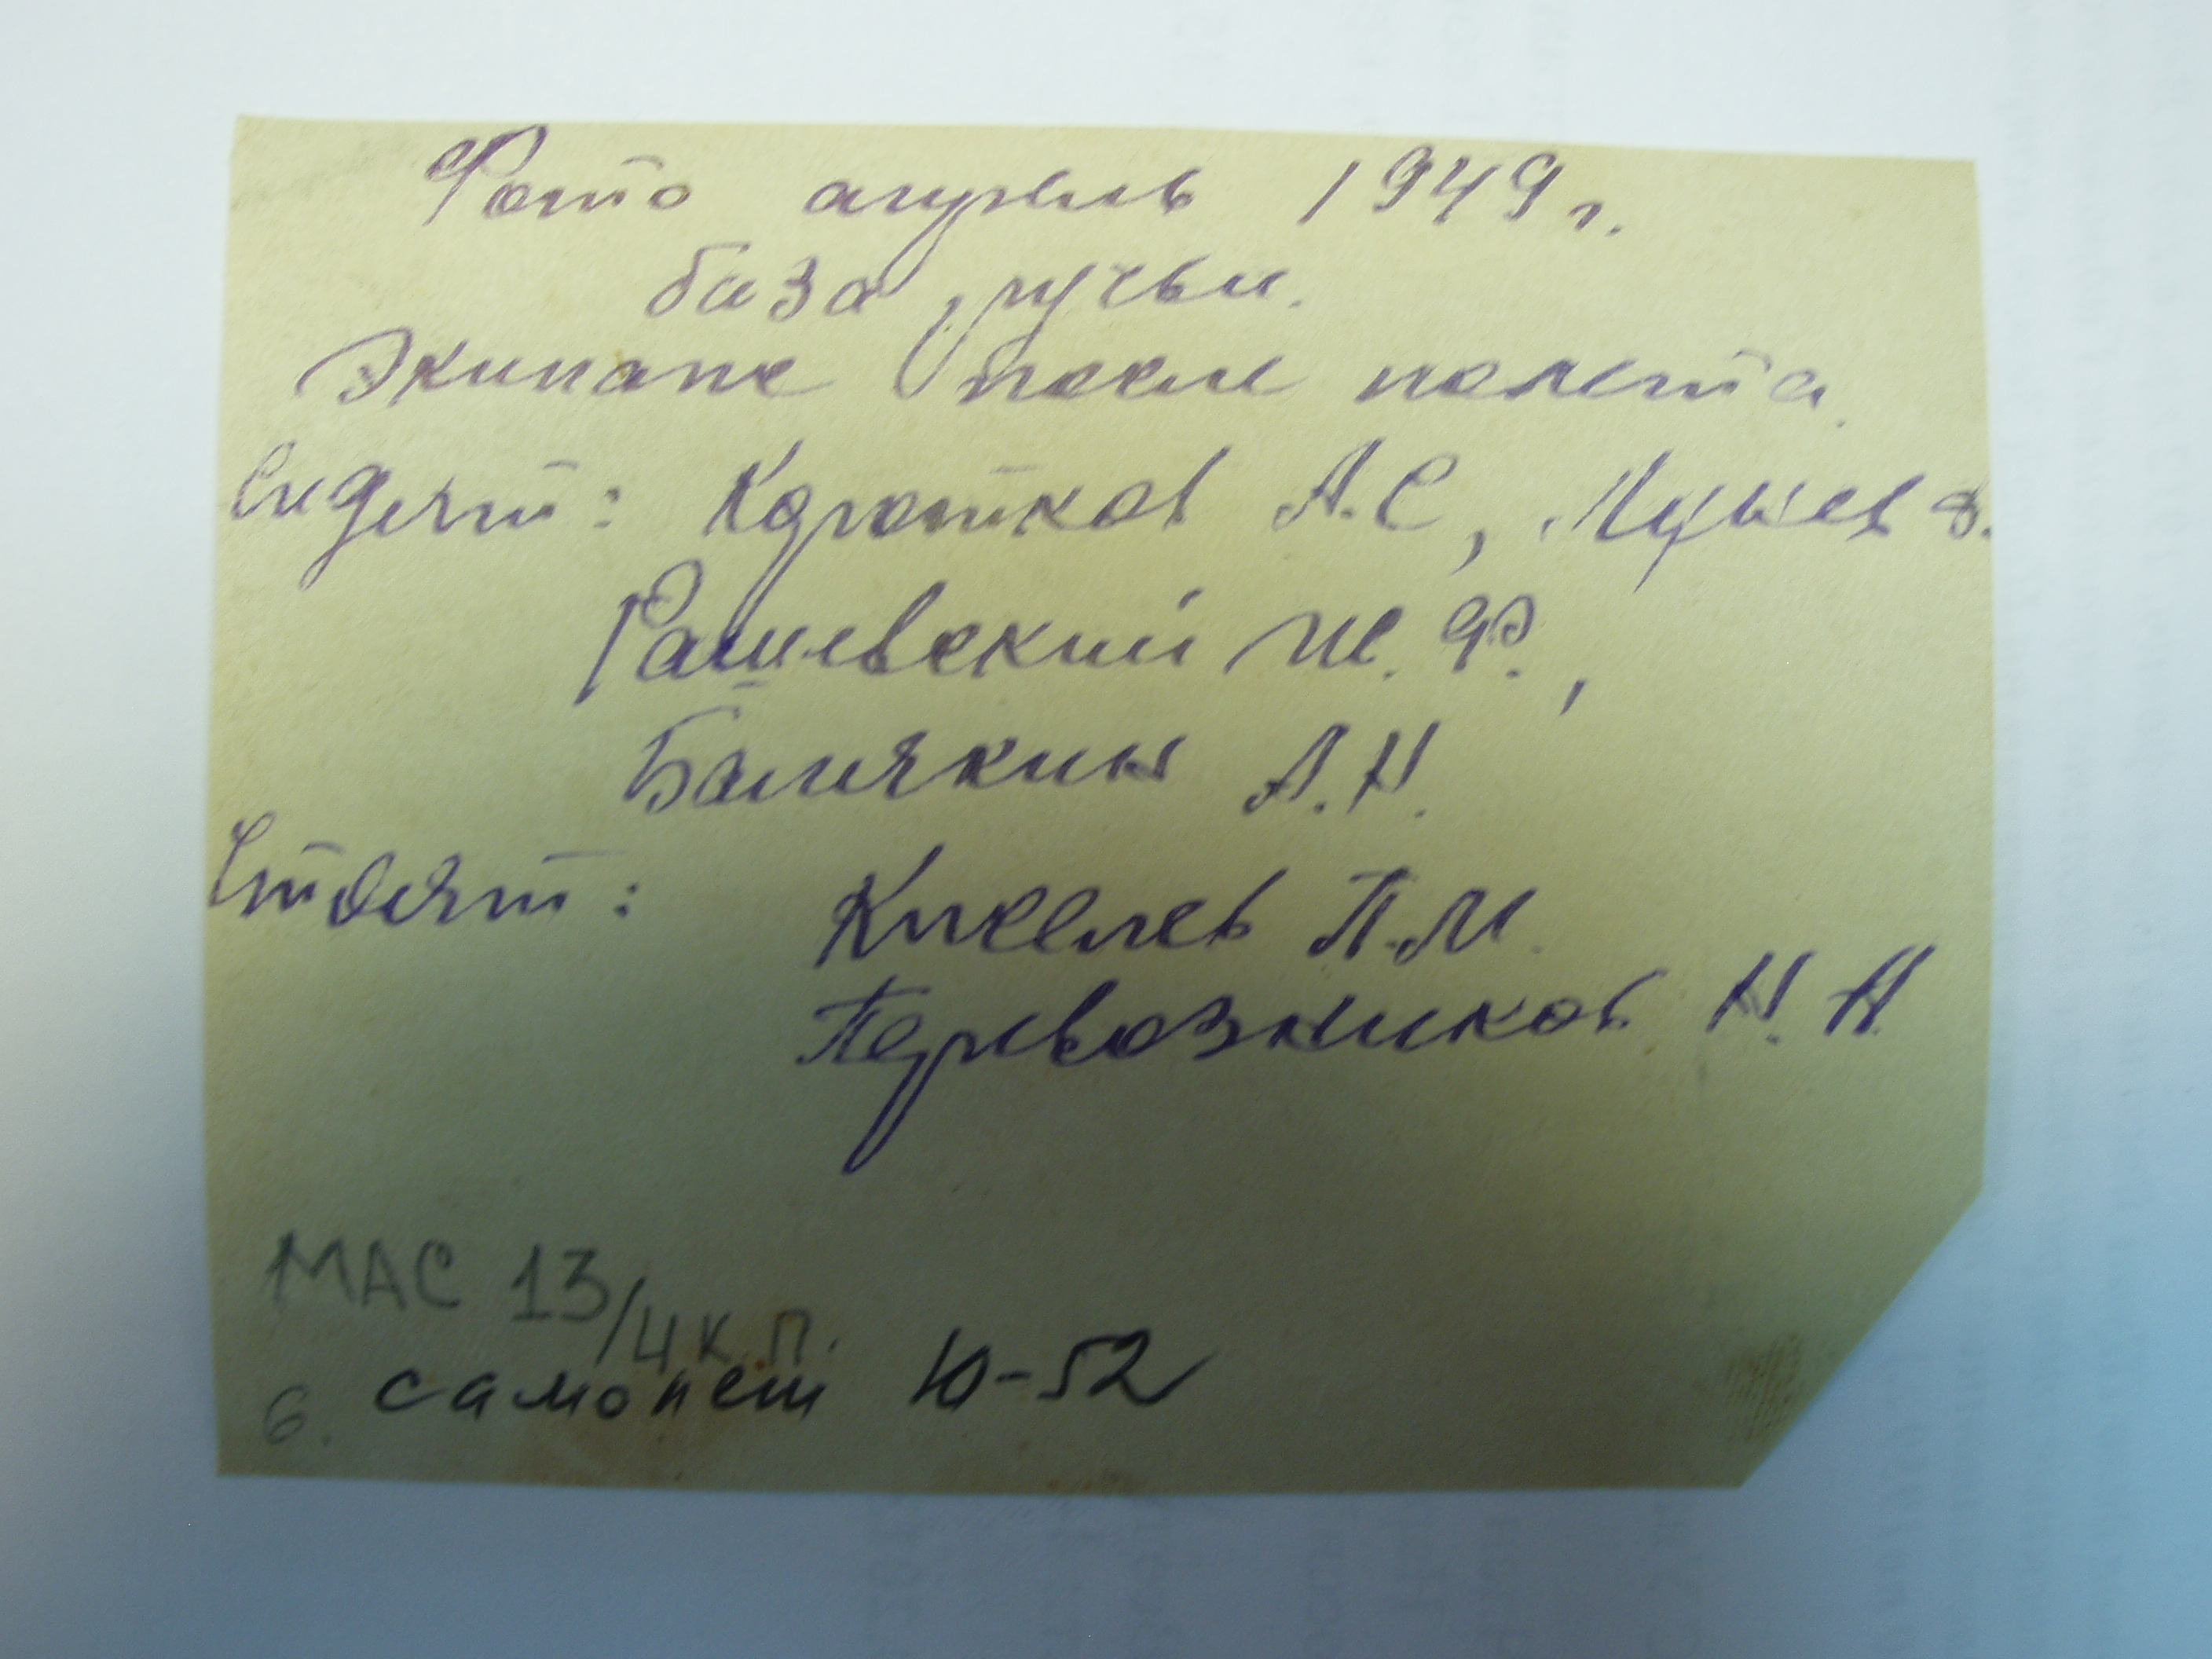 Фото апрель 1949 г.
база ручьи.
Экипаж после полета.
Сидят: Коротков А.С,
Рашевский М. Ф.,
Балякин А.Н.
Стоят: Киселев П.М.
Перевозников Н.Н.
МАС 13/4 К.П.
6. самолет Ю-52